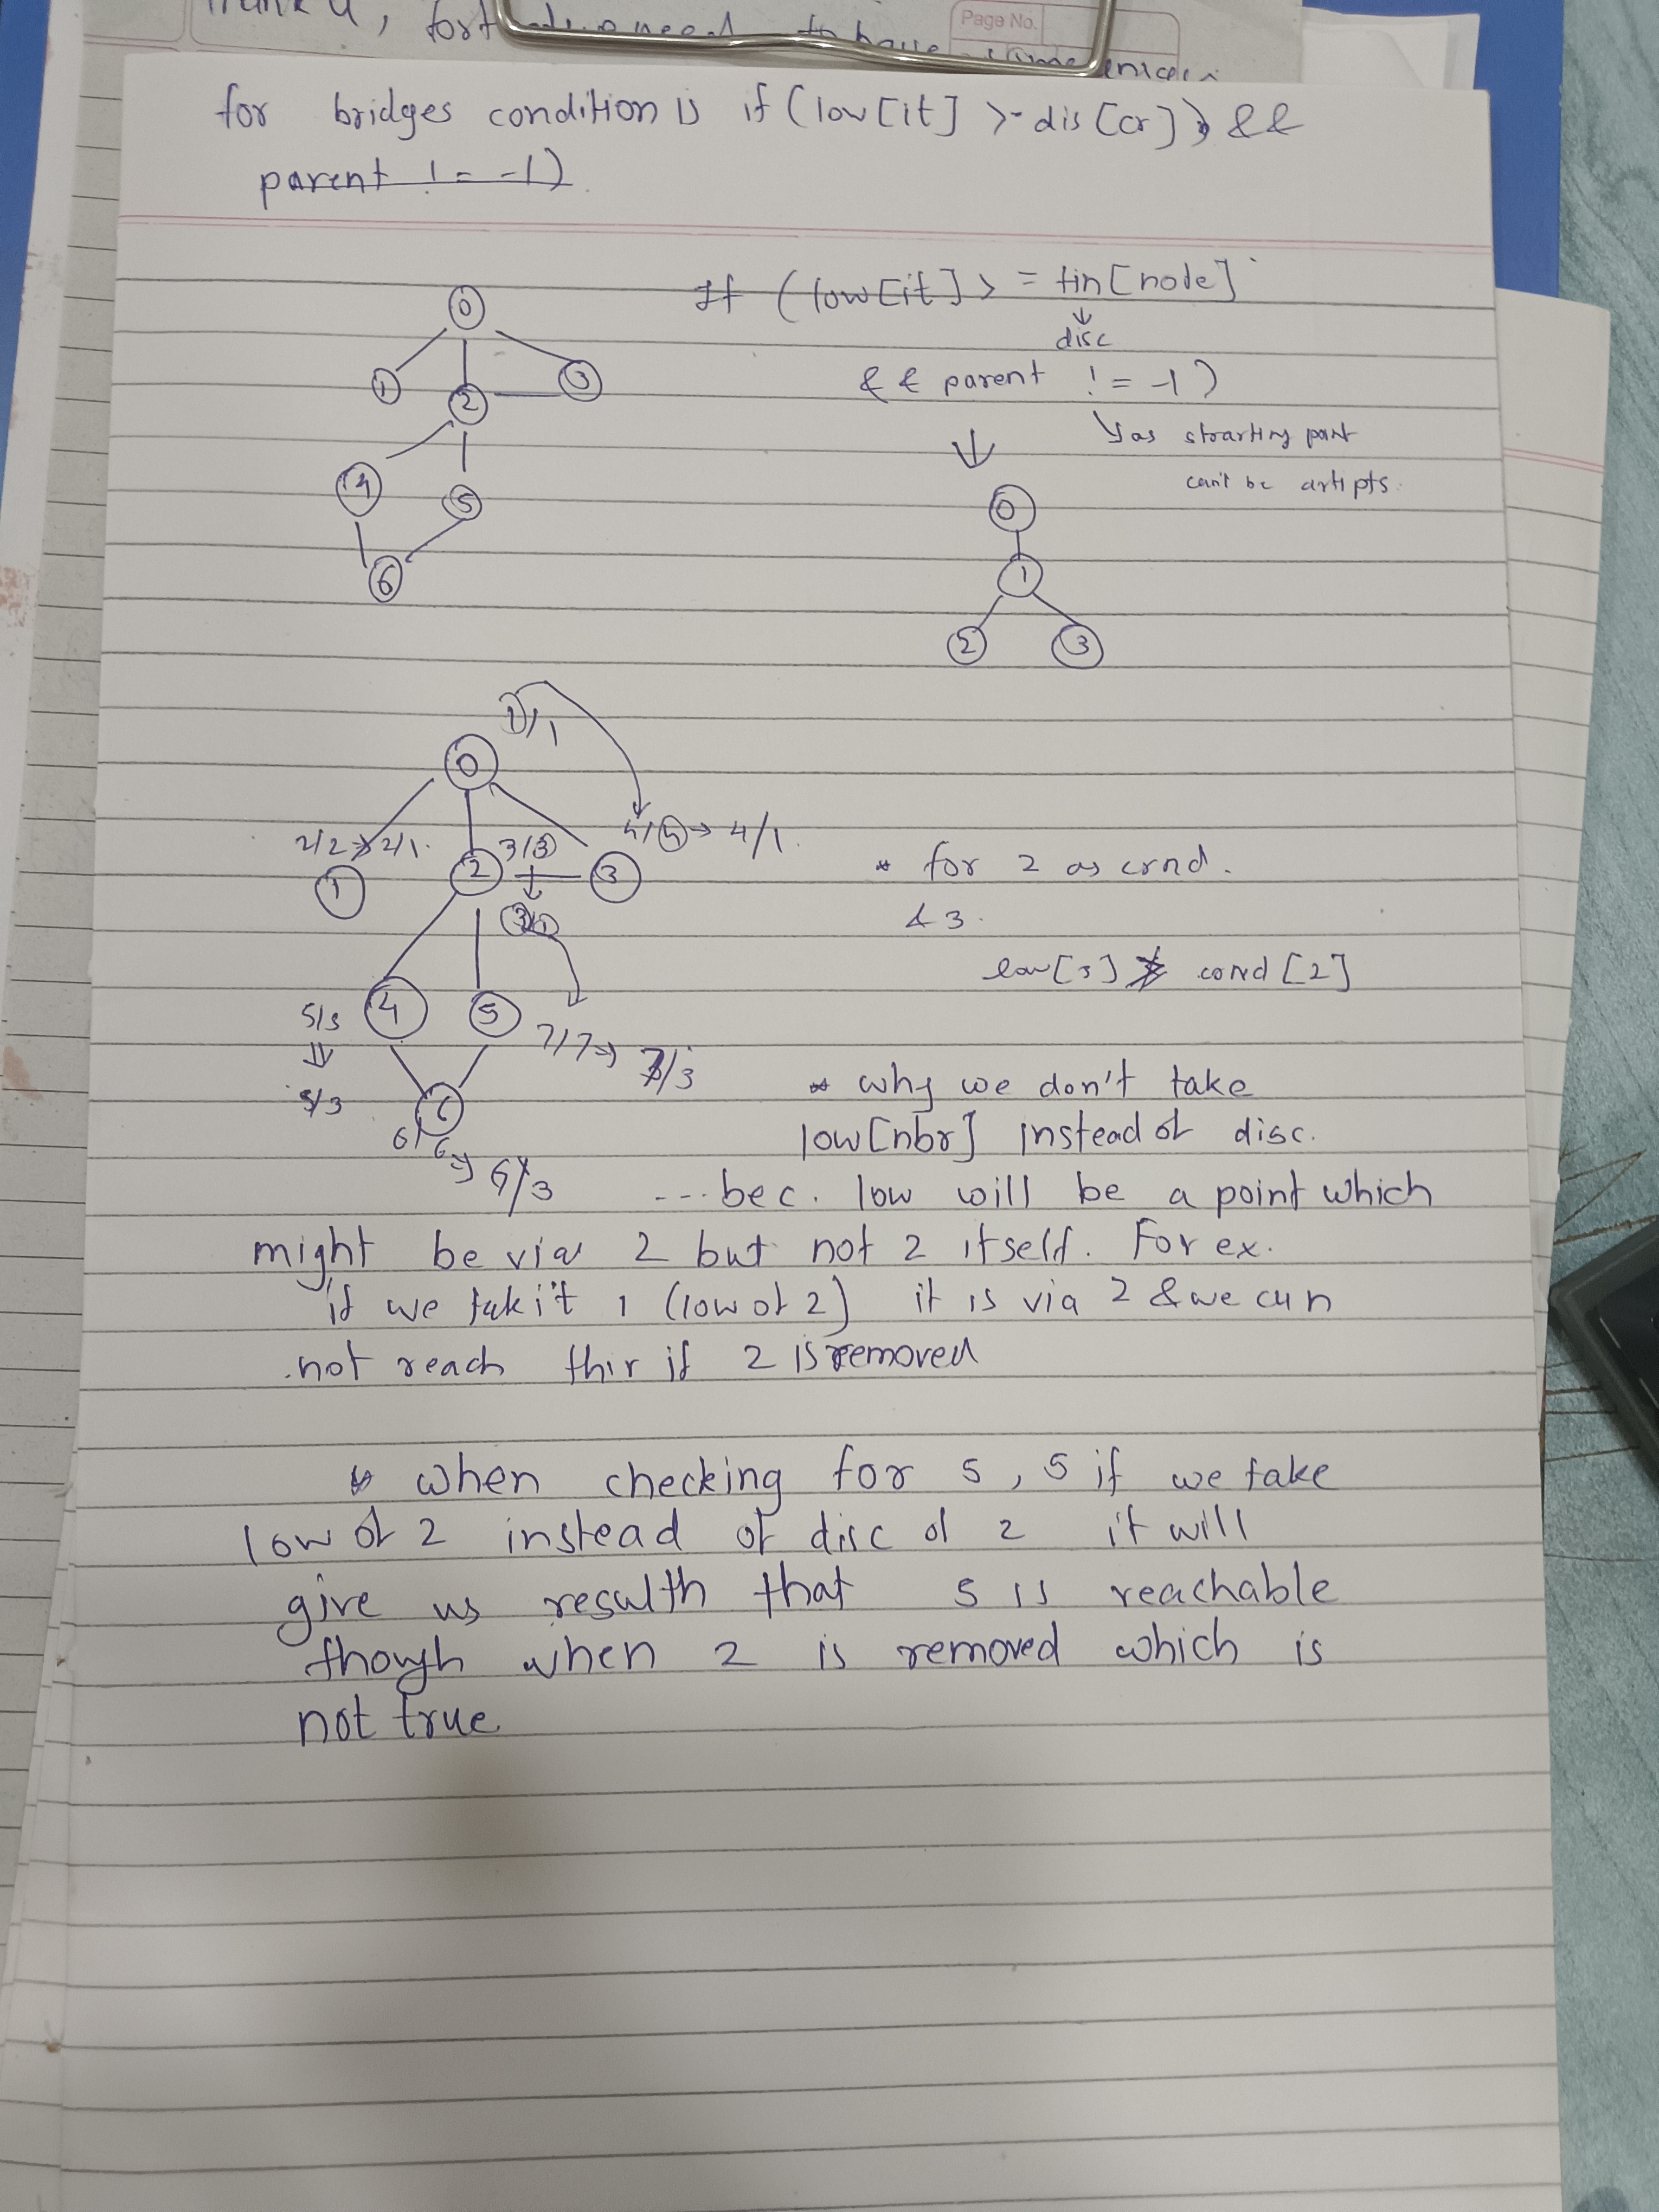 Page No.
for bridges condition is if (low[it] > dis[cr]) &&
parent != -1)
If (low[it] > = tin[node]
disc
&& parent != -1)
as strarting point
can't be arti pts.
0
1 2 3
4 5
6
0
1
2 3
1/1
0
2/2 → 2/1. 3/3 4/4 → 4/1
1 2 3
* for 2 as crnd.
& 3.
low[3] cond [2]
4 5
5/5
7/7 → 7/3
5/3
6
6/6 → 6/3
* why we don't take
low[nbr] instead of disc.
... bec. low will be a point which
might be via 2 but not 2 itself. For ex.
if we take it 1 (low of 2) it is via 2 & we can
not reach thir if 2 is removed
* when checking for 5, 5 if we take
low of 2 instead of disc of 2 it will
give us resulth that 5 is reachable
though when 2 is removed which is
not true